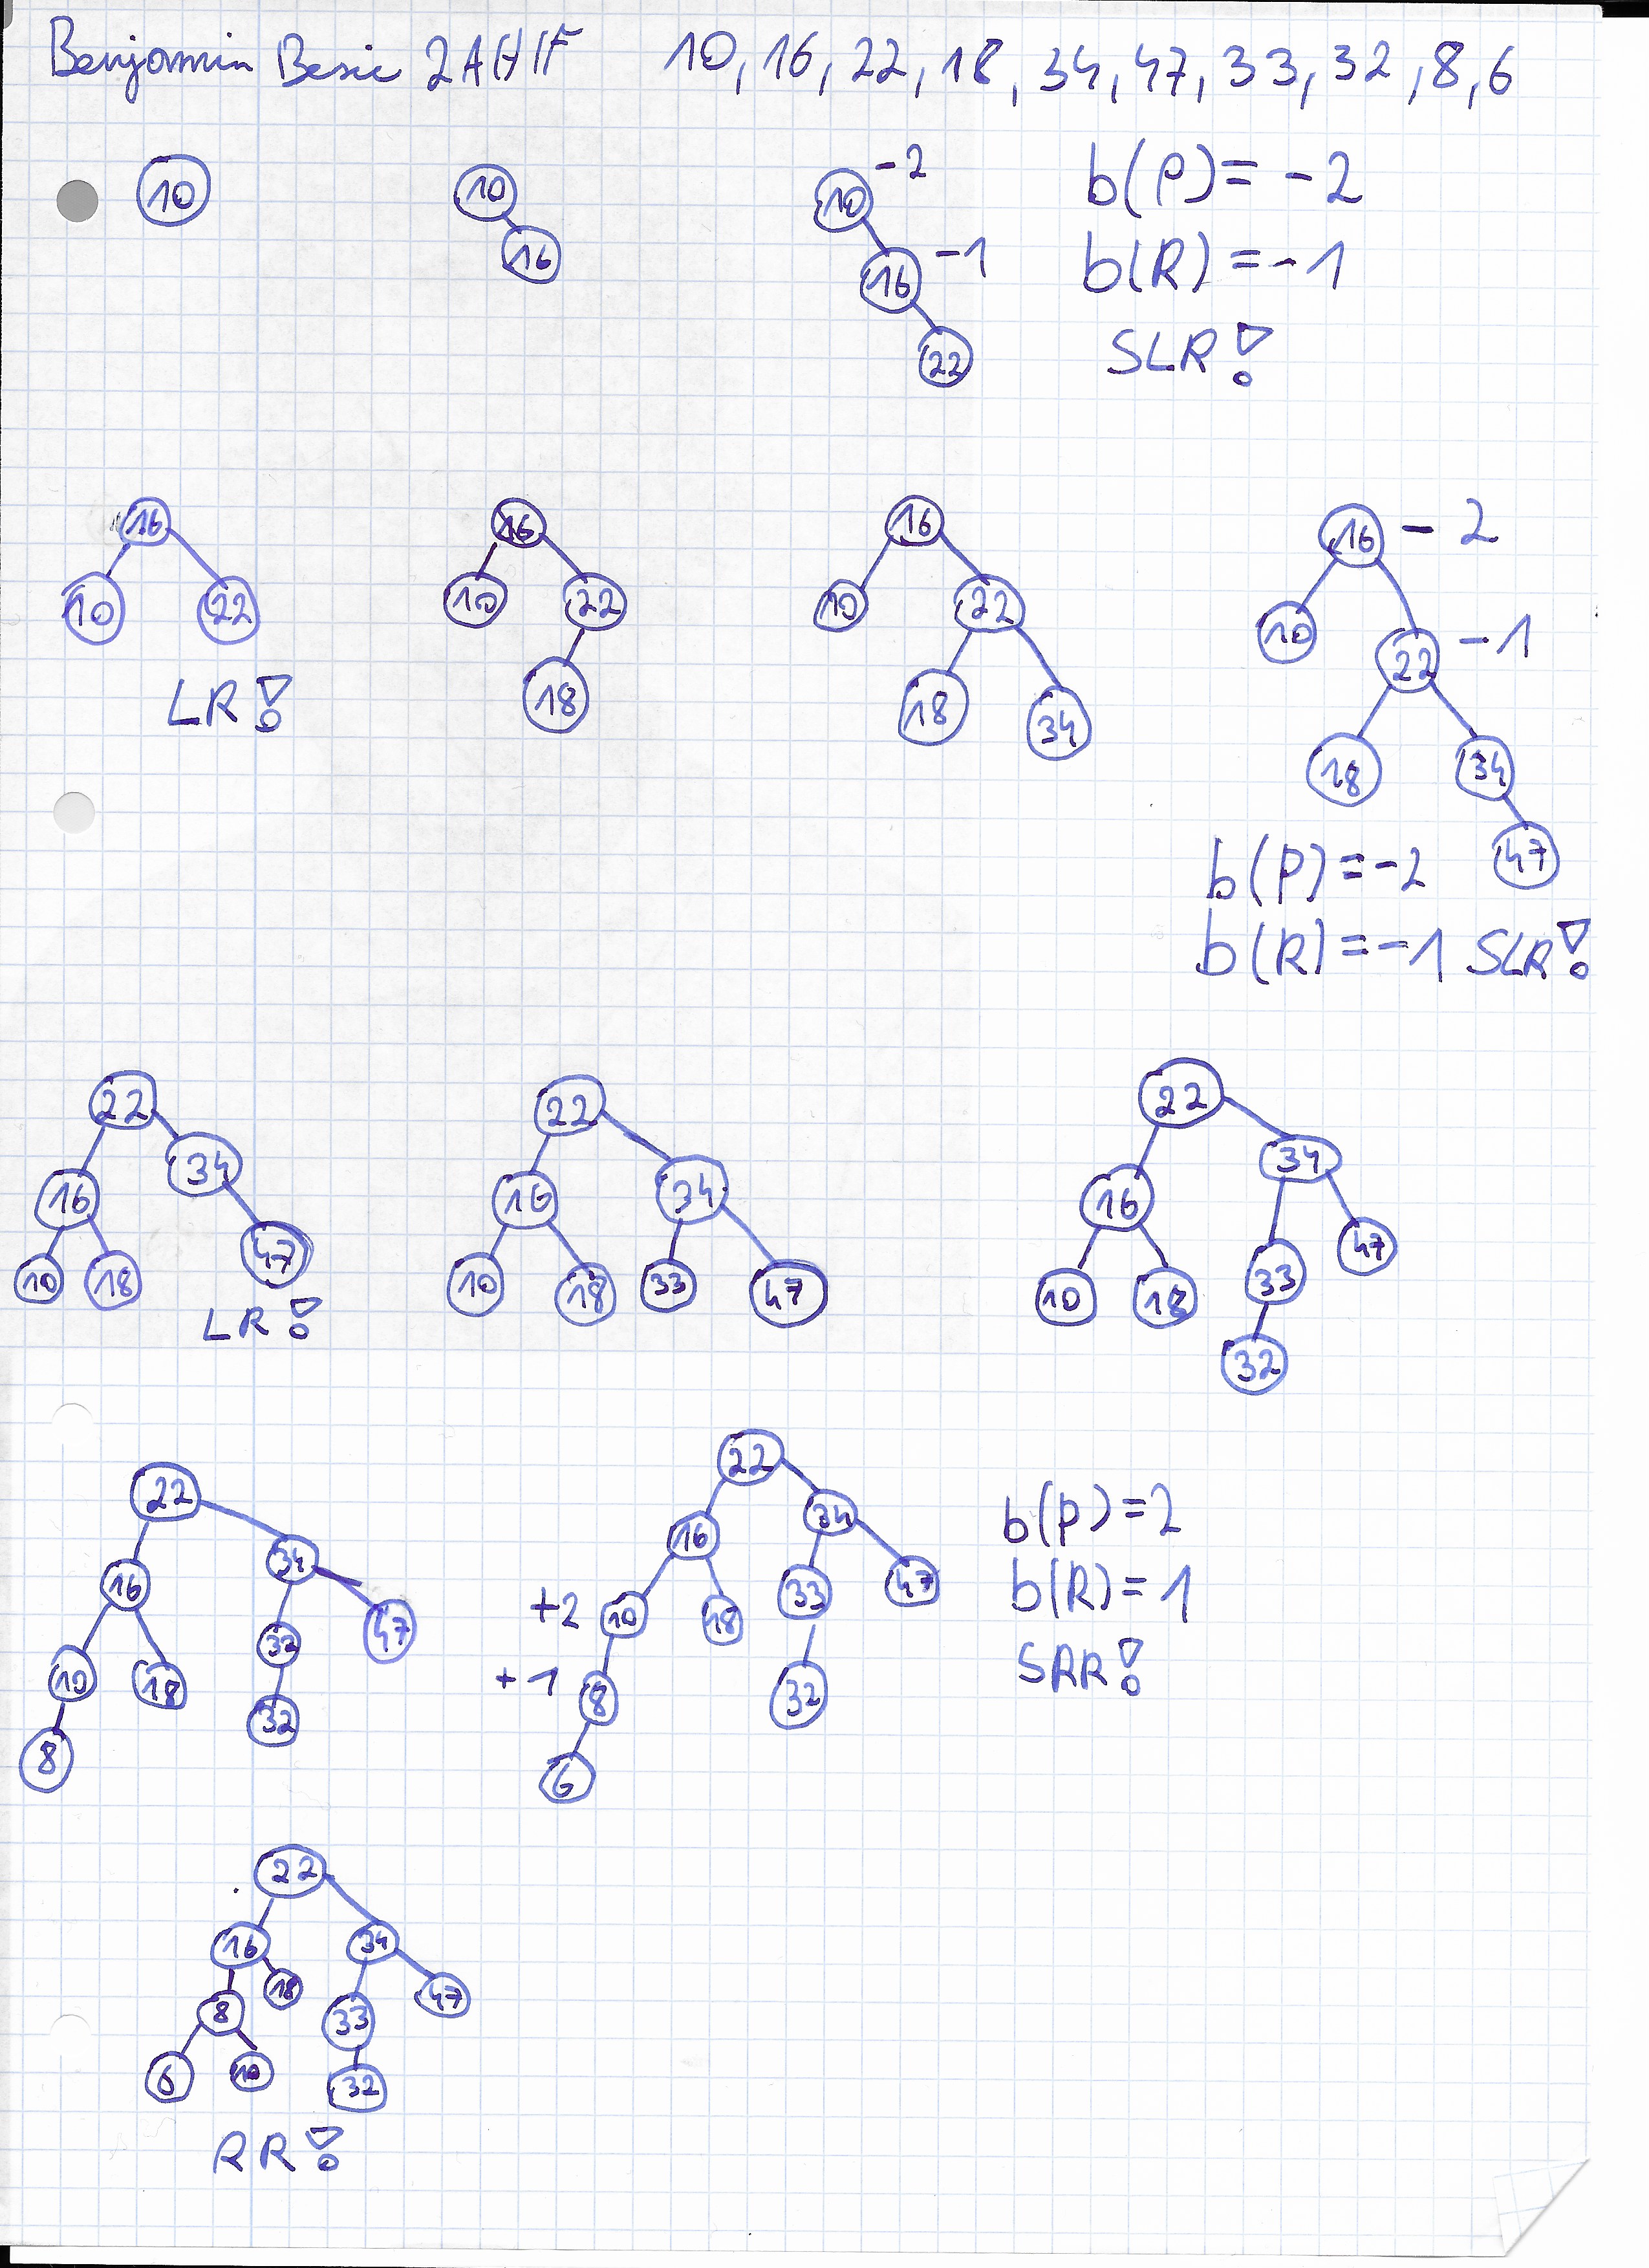 Benjamin Besic 2AHIF 10, 16, 22, 18, 34, 47, 33, 32, 8, 6
10
10
16
10 -2
16 -1
22
b(P) = -2
b(R) = -1
SLR!
16
10 22
LR!
16
10 22
18
16
10 22
18 34
16 -2
10 22 -1
18 34
47
b(P) = -2
b(R) = -1 SLR!
22
34
16
10 18 47
LR!
22
16 34
10 18 33 47
22
34
16
47
10 18 33
32
22
34
16
32 47
10 18
32
8
22
34
16
33 47
+2 10 18
+1 8 32
6
b(P) = 2
b(R) = 1
SRR!
22
16 34
18 47
8 33
6 10 32
RR!